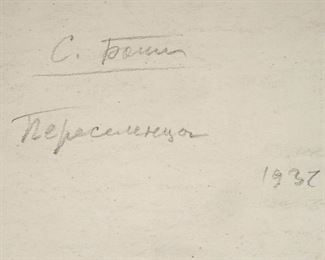 С. Бойм
Переселенцы
1937